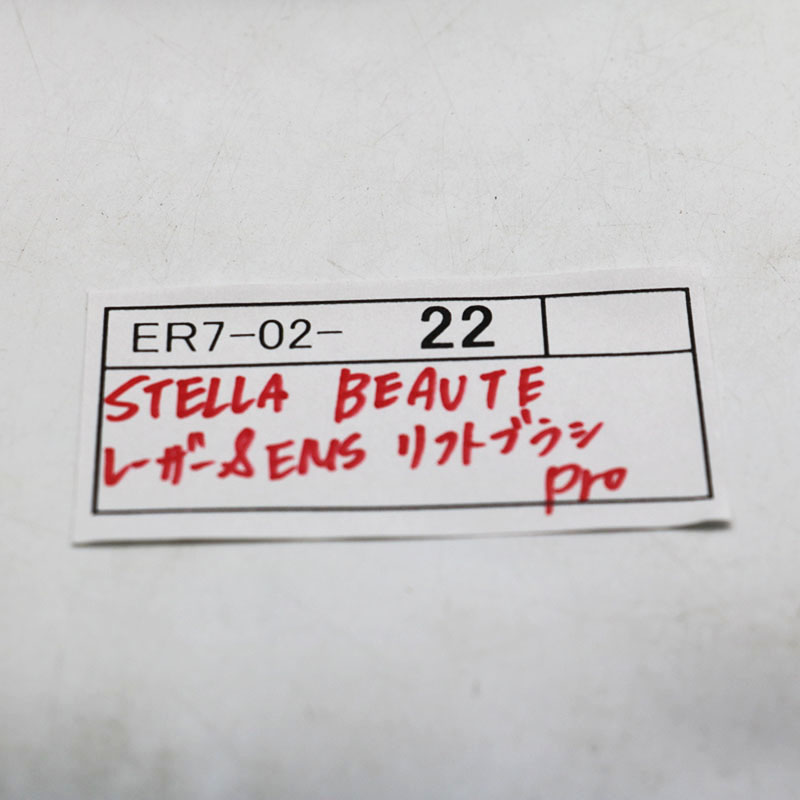 ER7-02- 22
STELLA BEAUTE
レーザー&EMS リフトブラシ
Pro